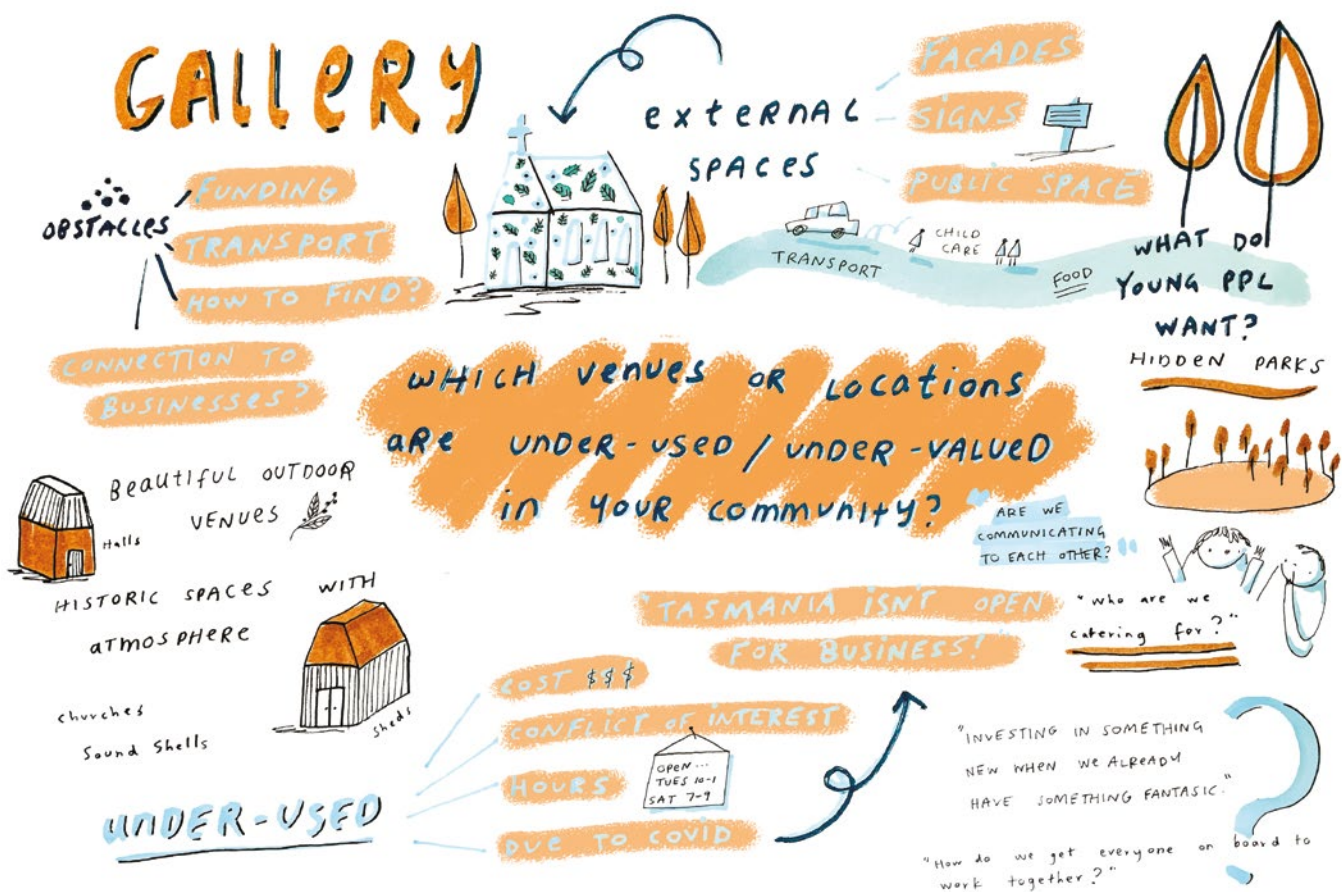 GALLERY
OBSTACLES
FUNDING
TRANSPORT
HOW TO FIND?
CONNECTION TO
BUSINESSES?
EXTERNAL
SPACES
FACADES
SIGNS
PUBLIC SPACE
TRANSPORT
CHILD
CARE
FOOD
WHAT DO
YOUNG PPL
WANT?
HIDDEN PARKS
WHICH VENUES OR LOCATIONS
ARE UNDER-USED / UNDER-VALUED
in YOUR COMMUNITY?
BEAUTIFUL OUTDOOR
VENUES
Halls
HISTORIC SPACES WITH
ATMOSPHERE
Sheds
churches
Sound Shells
UNDER-USED
COST $$$
CONFLICT OF INTEREST
HOURS
OPEN...
TUES 10-1
SAT 7-9
DUE TO COVID
"TASMANIA ISN'T OPEN
FOR BUSINESS!"
"ARE WE
COMMUNICATING
TO EACH OTHER?"
"who are we
catering for?"
"INVESTING IN SOMETHING
NEW WHEN WE ALREADY
HAVE SOMETHING FANTASIC."
"How do we get everyone on board to
work together?"